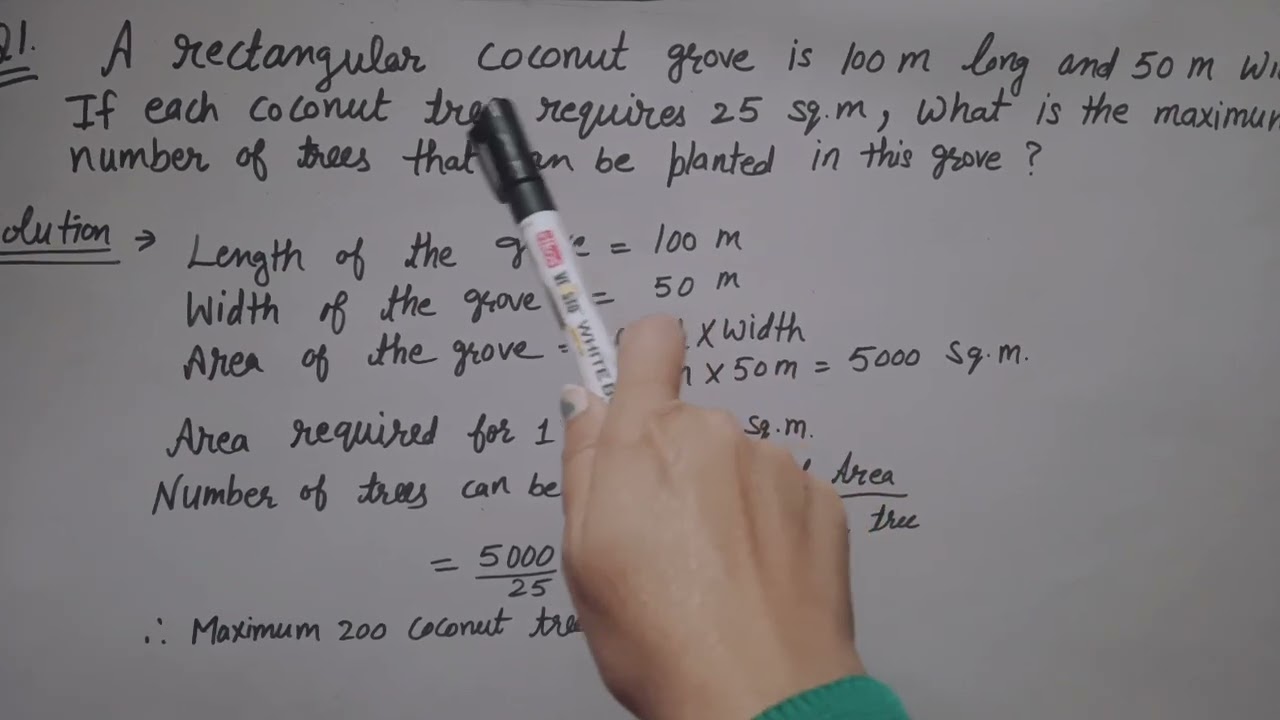 Q1. A rectangular coconut grove is 100 m long and 50 m wi
If each coconut tree requires 25 sq.m, What is the maximum
number of trees that can be planted in this grove ?
olution → Length of the grove = 100 m
Width of the grove = 50 m
Area of the grove = X Width
X 50 m = 5000 Sq.m.
Area required for 1 sq.m.
Number of trees can be Area
tree
= 5000
25
∴ Maximum 200 coconut tree
WHITEB